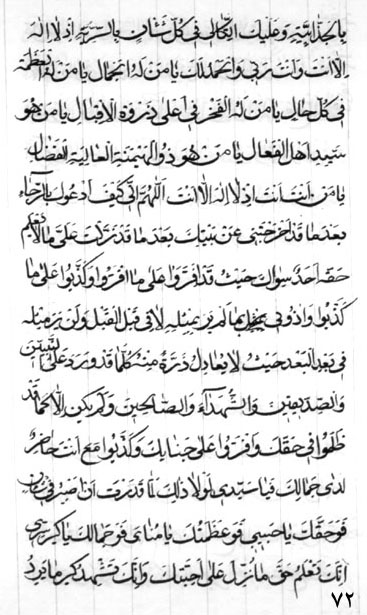 بالجذابية وعليك اتكالى فى كل شان بالسرية اذ لا اله
الا انت وانت ربى والحمد لك يا من له الجمال يا من له العظمة
فى كل حال يا من له الفخر فى اعلى ذروة الاقبال يا من هو
سيد اهل الفعال يا من هو ذو الهيمنة العالية الفضال
يا من انت انت اذ لا اله الا انت اللهم انى كيف ادعوك بالرخاء
بعد ما قد اخر حتبى عن بيتك بعد ما قدرت على ما لا يعلم
حقه احد سواك حيث قد افتروا على ما افتروا وكذبوا على ما
كذبوا واذونى بما لم ير بمثله لا فى قبل القبل ولن ير مثله
فى بعد البعد حيث لا يعادل ذرة منه كلما قد ورد على النبيين
والصديقين والشهداء والصالحين ولم يكن الا كما قد
ظلموا فى حقك وافتروا على جنابك وكذبوا مع انت حاضر
لدى جمالك فيا سيدى لولا ذلك لما قدرت ان اصبر فى شان
فوحقك يا حبيبى فوعظمتك يا مناى فوجمالك يا
انك تعلم حق ما نزل على احبتك وانك تشهد كل ما يرد
٧٢